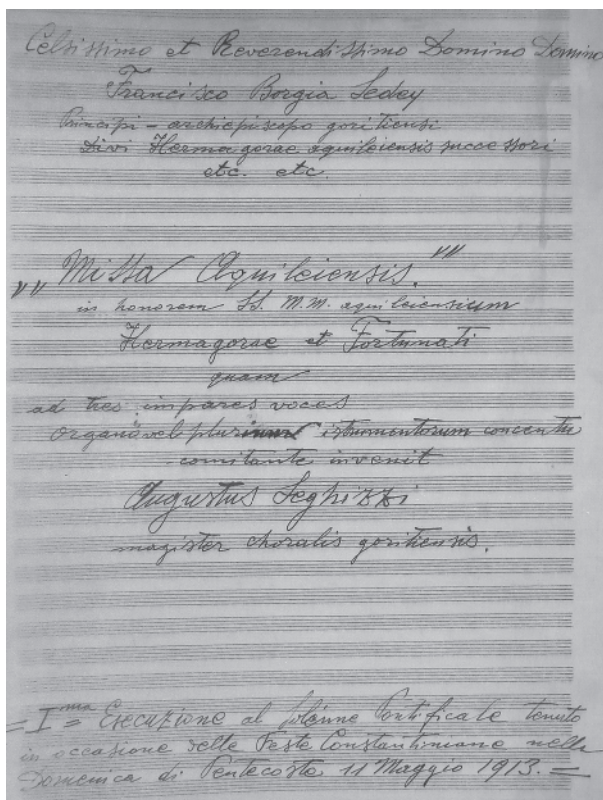 Celsissimo et Reverendissimo Domino Domino
Francisco Borgia Sedey
Principi - archiepiscopo goritiensi
Divi Hermagorae aquileiensis successori
etc. etc.
„„Missa Aquileiensis.""
in honorem SS. M.M. aquileiensium
Hermagorae et Fortunati
quam
ad tres impares voces
organo vel plurium istrumentorum concentu
comitante invenit
Augustus Seghizzi
magister choralis goritiensis.
= Ima Esecuzione al solenne Pontificale tenuto
in occasione delle Feste Constantiniane nella
Domenica di Pentecoste 11 Maggio 1913. =